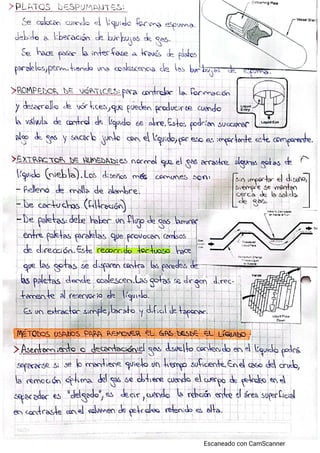 >PLATOS DESPUMANTES:
Se colocan cuando el líquido forma espuma
debido a liberación de burbujas de gas.
Se hace pasar la interfase a través de platos
paralelos, permitiendo una coalescencia de las burbujas de espuma.
>ROMPEDOR DE VÓRTICES: para controlar la formación
y desarrollo de vórtices, que pueden producirse cuando
la válvula de control de líquido se abre. Estos podrían succionar
algo de gas y sacarlo junto con el líquido, por eso es importante este componente.
>EXTRACTOR DE HUMEDAD: es normal que el gas arrastre algunas gotas de
líquido (niebla). Los diseños más comunes son:
- Relleno de malla de alambre.
- De cartuchos (filtración)
- De paletas: debe haber un flujo de gas laminar
entre paletas paralelas que provocan cambios
de dirección. Este recorrido tortuoso hace
que las gotas se disparen contra las paredes de
las paletas donde coalescen. Las gotas se dirigen direc-
tamente al reservorio de líquido.
Es un extractor simple, barato y difícil de taponar.
Sin importar el diseño,
siempre se montan
cerca de la salida
de gas.
Liquid Exit
METODOS USADOS PARA REMOVER EL GAS DESDE EL LÍQUIDO:
> Asentamiento o decantación: el gas disuelto contenido en el líquido podrá
separarse si se lo mantiene quieto un tiempo suficiente. En el caso del crudo,
la remoción óptima del gas se obtiene cuando el cuerpo de petróleo en el
separador es "delgado", es decir, cuando la relación entre el área superficial
en contraste con el volumen de petróleo retenido es alta.
Escaneado con CamScanner